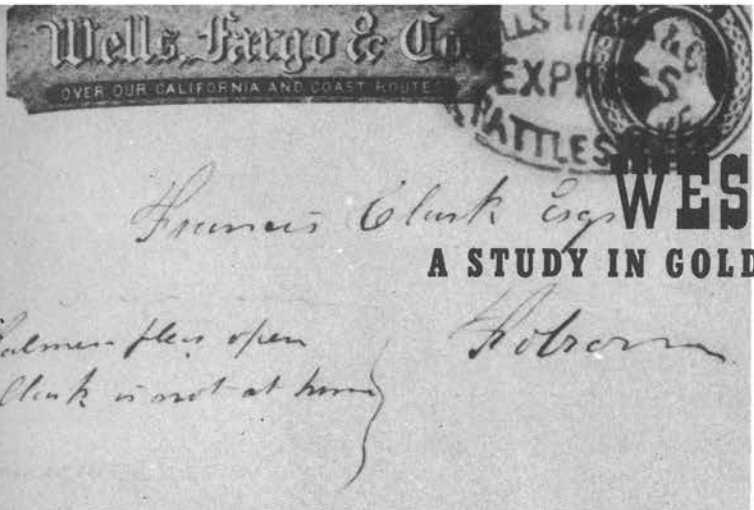 Wells, Fargo & Co.
OVER OUR CALIFORNIA AND COAST ROUTES
EXPRESS
RATTLES
WES
A STUDY IN GOLD
Francis Clark Esqr
Folsom
open
Clark is not at home